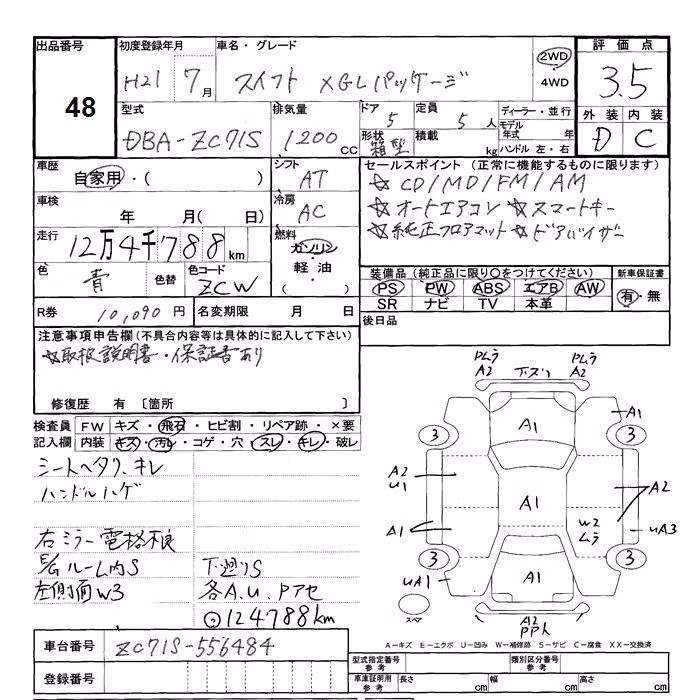 出品番号 初度登録年月 車名・グレード 2WD 評価点
48 H21 7月 スイフト XGLパッケージ 4WD 3.5
型式 排気量 ドア 定員 ディーラー・並行 外装 内装
DBA-ZC71S 1200CC 5 5人 モデル年式 年 D C
形状 箱型 積載 kg ハンドル 左・右
車歴 自家用・( ) シフト AT セールスポイント(正常に機能するものに限ります)
☆CD/MD/FM/AM
車検 年 月( 日) 冷房 AC ☆オートエアコン ☆スマートキー
走行 12万4千788km 燃料 ガソリン・軽油・( ) ☆純正フロアマット ☆ドアバイザー
色 青 色替 色コード ZCW 装備品(純正品に限り○をつけてください) 新車保証書
PS PW ABS エアB AW 有・無
SR ナビ TV 本革
R券 10,090円 名変期限 月 日 後日品
注意事項申告欄(不具合内容等は具体的に記入して下さい)
☆取扱説明書・保証書あり
修復歴 有〔箇所 〕
検査員記入欄 FW キズ・飛石・ヒビ割・リペア跡・×要
内装 キズ・汚レ・コゲ・穴・スレ・キレ・破レ
シートヘタリ、キレ
ハンドルハゲ
右ミラー電格不良
ルーム内S 下廻りS
左側面W3 各A.U.Pアセ
◎124788km
PムラA2 下スリ PムラA2
A1 A1
3 3
A2 U1 A1 A2
A1 W2ムラ UA3
3 3
UA1 A1
スペア A2 PPト
A-キズ E-エクボ U-凹み W-補修跡 S-サビ C-腐食 XX-交換済
車台番号 ZC71S-556484 型式指定番号参考 類別区分番号参考
登録番号 車庫証明用参考 長さ cm 幅 cm 高さ cm